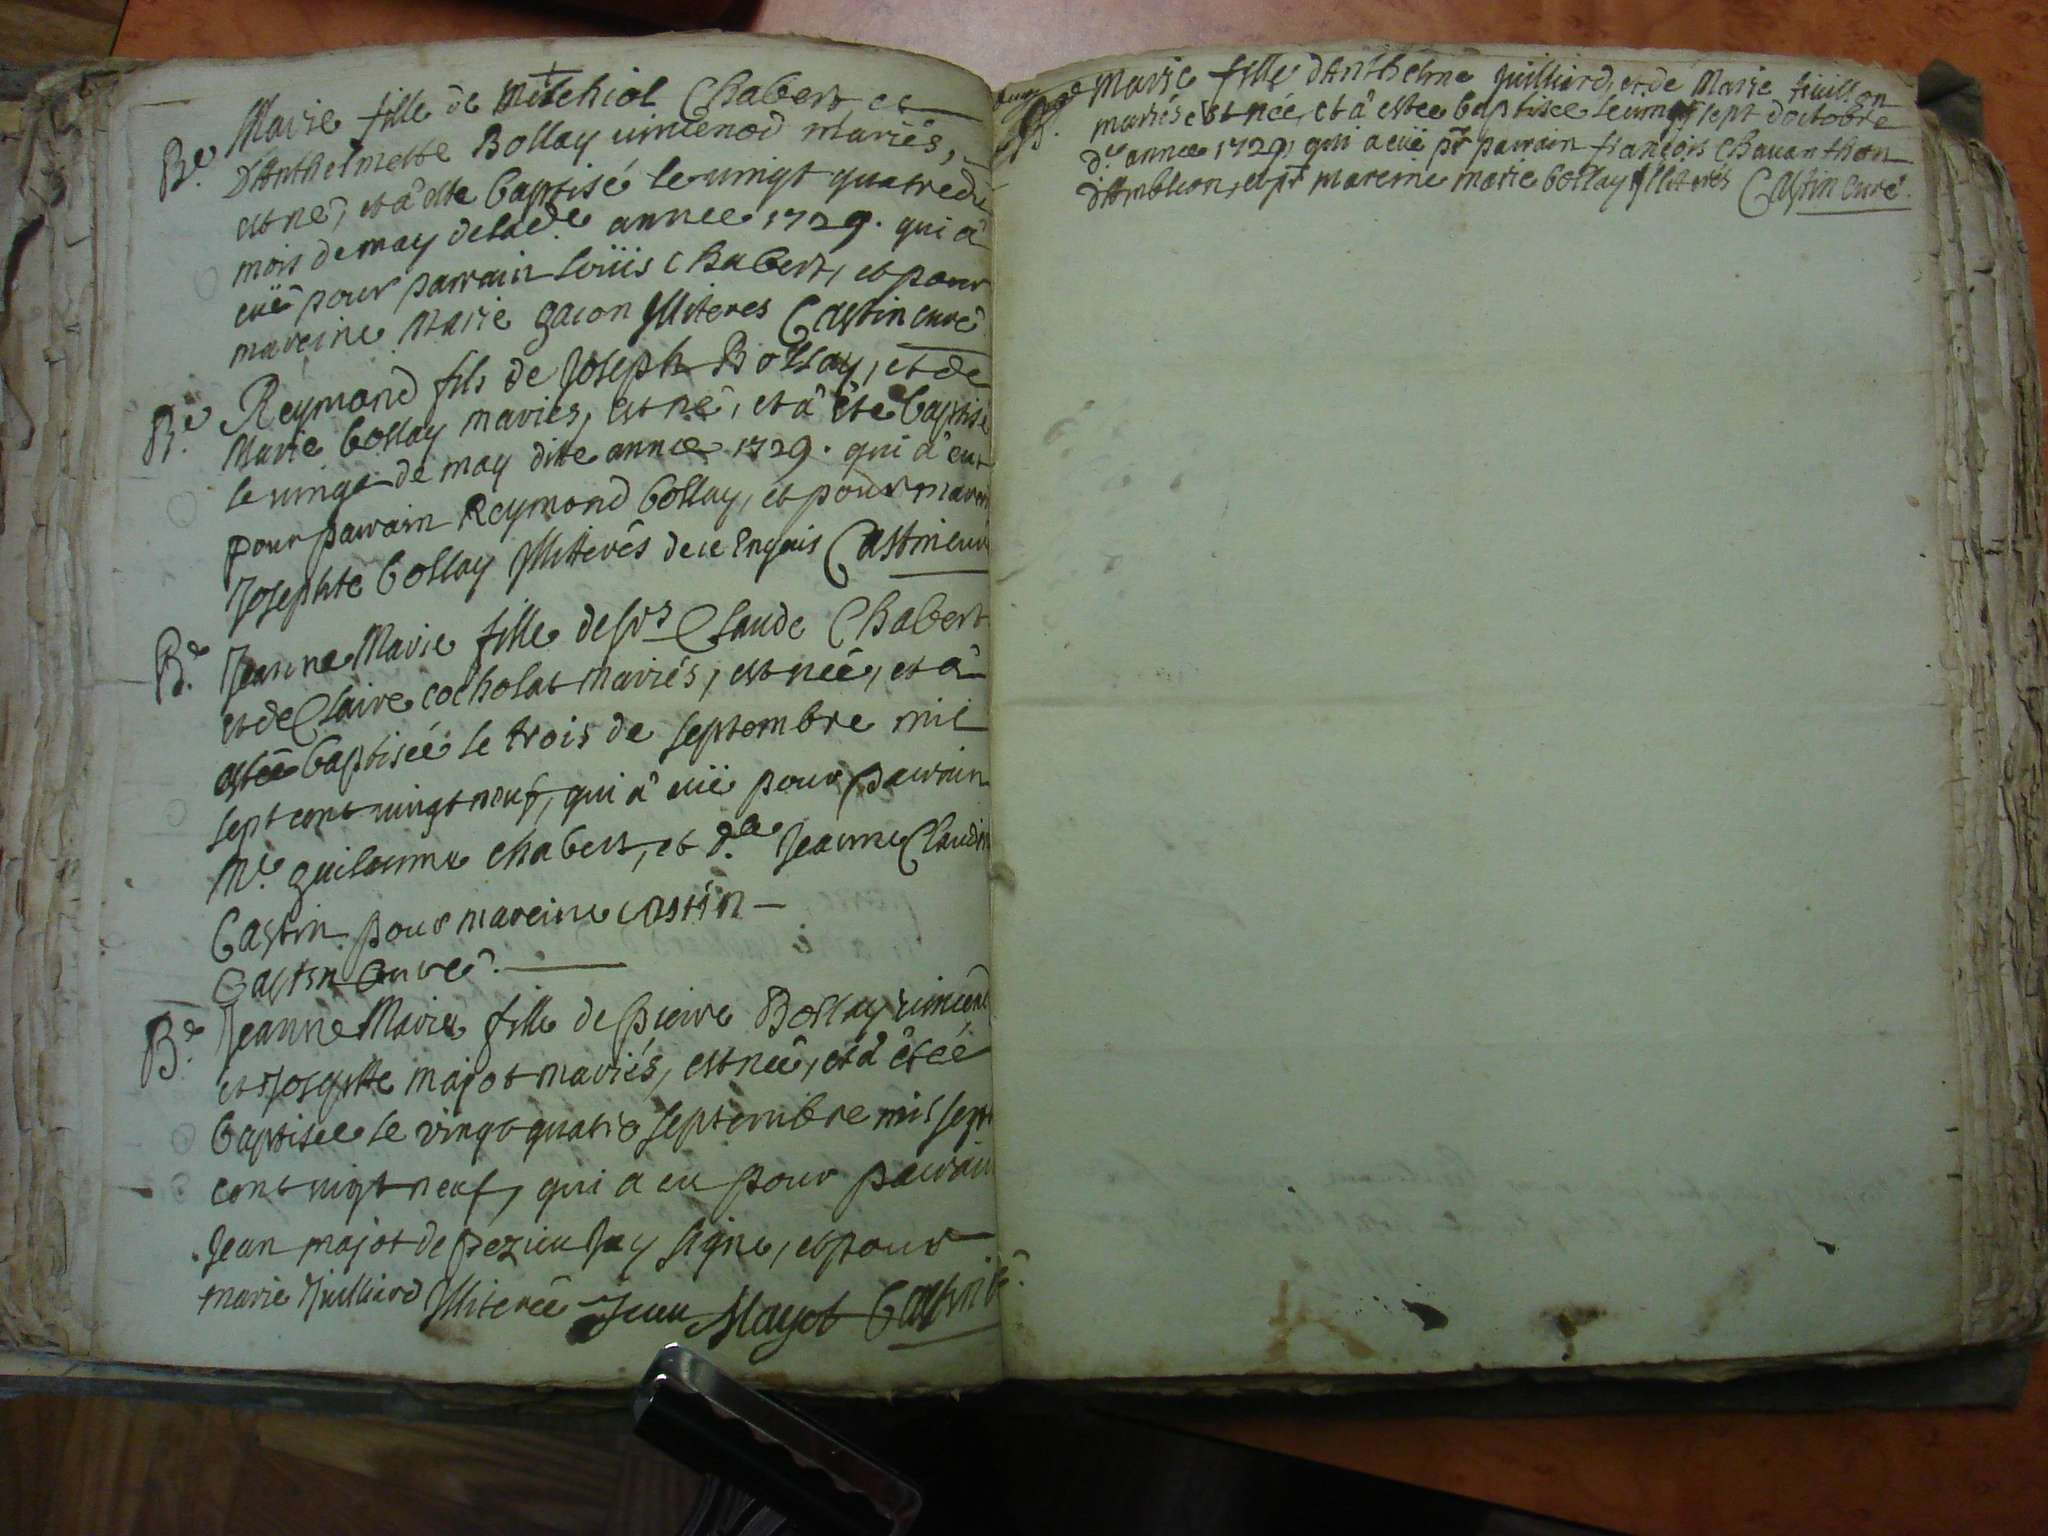 B.e Marie fille de Melchiol Chabert et
D'Anthelmette Bollay vincenod mariés,
est né, et à été baptisé le vingt quatre du
mois de may de lad.e annee 1729. qui à
eüe pour parrain loüis Chabert, et pour
mareine Marie gacon Jlliteres Castin curé
B.e Reymond fils de Joseph Bollay, et de
Marie bollay mariés, est né, et à été baptisé
le vingt de may dite année 1729. qui à eut
pour parrain Reymond bollay, et pour
Josephte bollay Jllitterés de ce Castin
B.e Jeanne Marie fille de Claude Chabert
et de Claire cocholat mariés, est née, et à
estée baptiseé le trois de septembre mil
sept cent vingt neuf, qui à eüe pour parrain
M.e guilaume chabert, et d.lle Jeanne Claudine
Castin pour mareine castin
Castin Curé.
B.e Jeanne Marie fille de pierre Bollay vincend
et Josephte majot mariés, est neé, et à êteé
baptisee le vingt quatre septembre mil sept
cent vigt neuf, qui a eu pour parrain
Jean majot de pezieu Jcy signe, et pour
marie Juilliard Jlliterée Jean Mayot Castin
B.e Marie fille d'Anthelme Juilliard, et de Marie
mariés est née, et à estée baptisee le vingt sept d'octobre
d.e annee 1729, qui a eüe pr parrain françois Chavanthon
d'Ambleon, et pr mareine marie bollay Jlliterés Castin Curé.